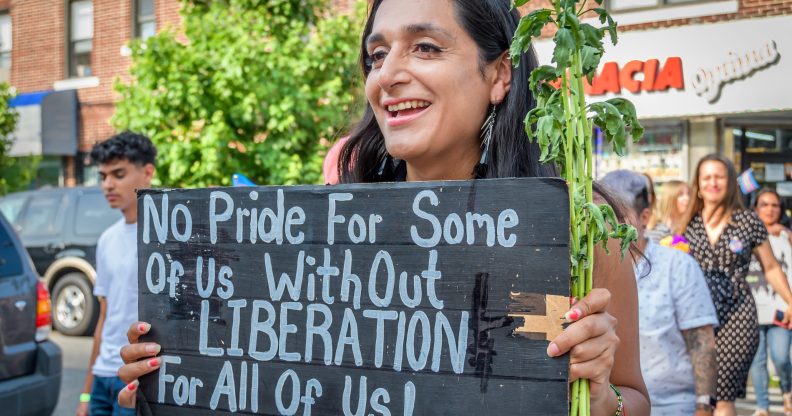 No Pride For Some
Of Us WithOut
LIBERATION
For All Of Us!
MACIA
optima